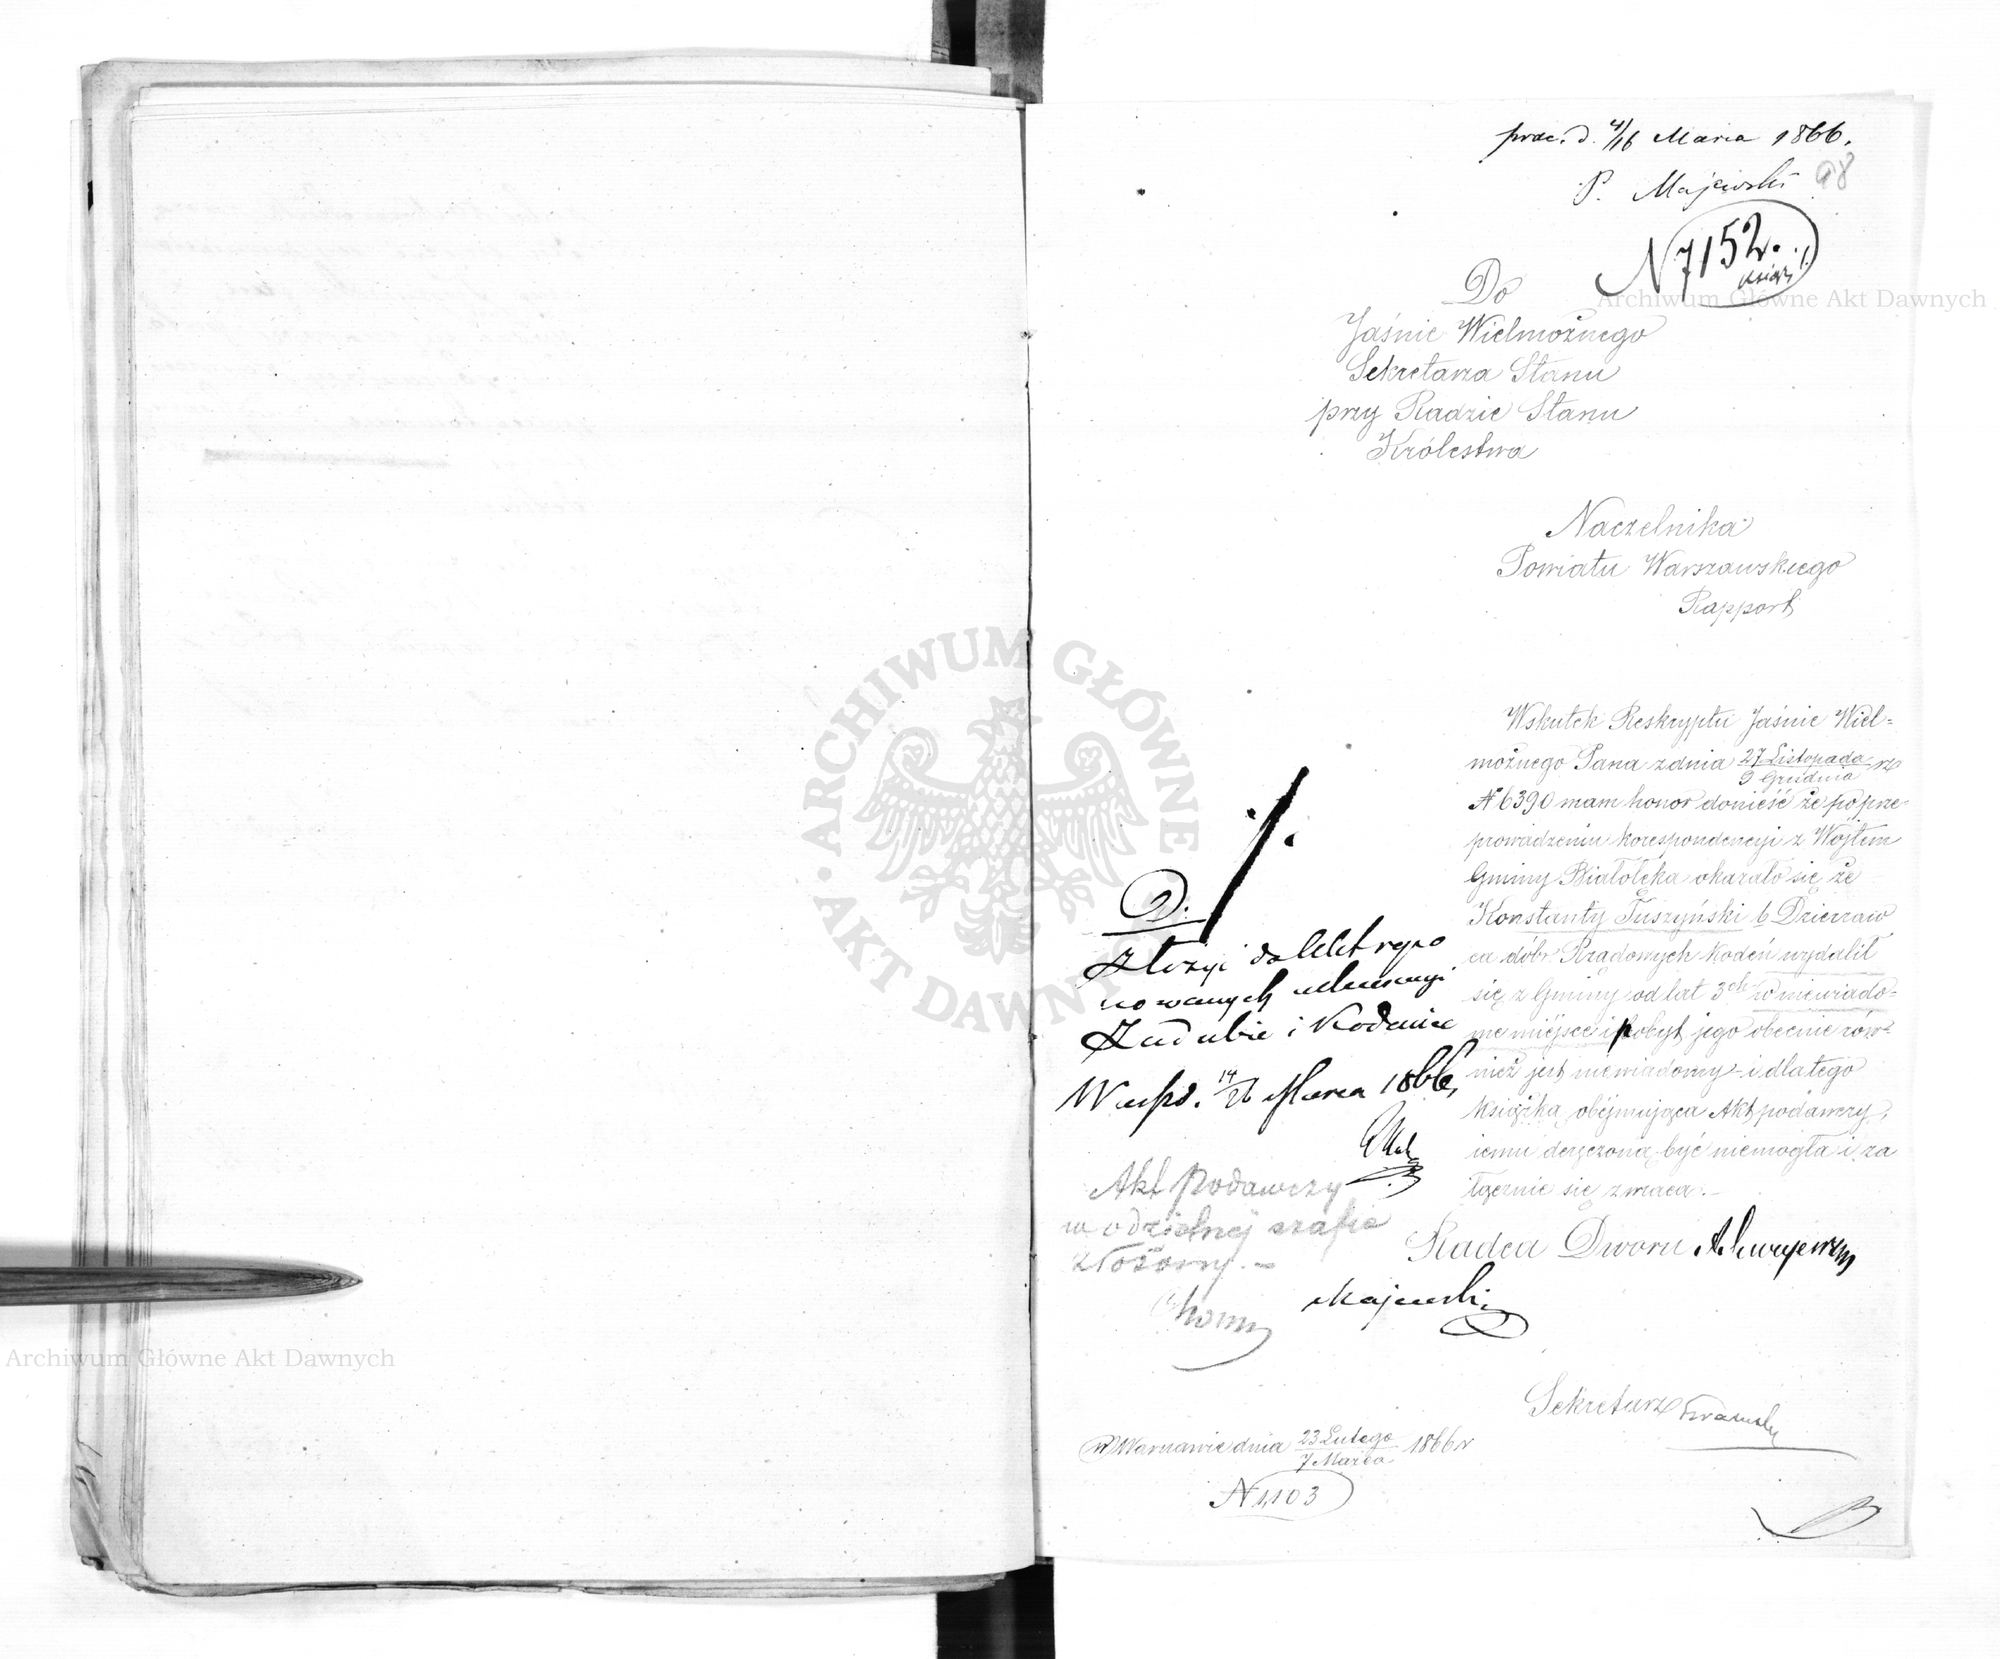 prae. d. 4/16 Marca 1866.
P. Majewski
98
N 7152.
książ. 1.
Do
Jaśnie Wielmożnego
Sekretarza Stanu
przy Radzie Stanu
Królestwa
Naczelnika
Powiatu Warszawskiego
Rapport
Wskutek Reskryptu Jaśnie Wiel-
możnego Pana z dnia 27 Listopada / 9 Grudnia rz
N 6390 mam honor donieść że po prze-
prowadzeniu korespondencyi z Wójtem
Gminy Białołęka okazało się że
Konstanty Tuszyński b Dzierżaw
ca dóbr Rządowych Kodeń wydalił
się z Gminy od lat 3ch w niewiado-
me miéjsce i pobyt jego obecnie rów-
nież jest niewiadomy - i dlatego
książka obéjmująca Akt podawczy,
iemu doręczoną być niemogła i za
łącznie się zwraca. -
Radca Dworu
Sekretarz
D.
Złożyć do Akt
nowanych
i Kodeniec
Warsz. 14/26 Marca 1866,
Akt podawczy
w oddzielnej szafie
złożony. -
Majewski
w Warszawie dnia 23 Lutego / 7 Marca 1866 r
N 1,103
Archiwum Główne Akt Dawnych
ARCHIWUM GŁÓWNE AKT DAWNYCH
Archiwum Główne Akt Dawnych